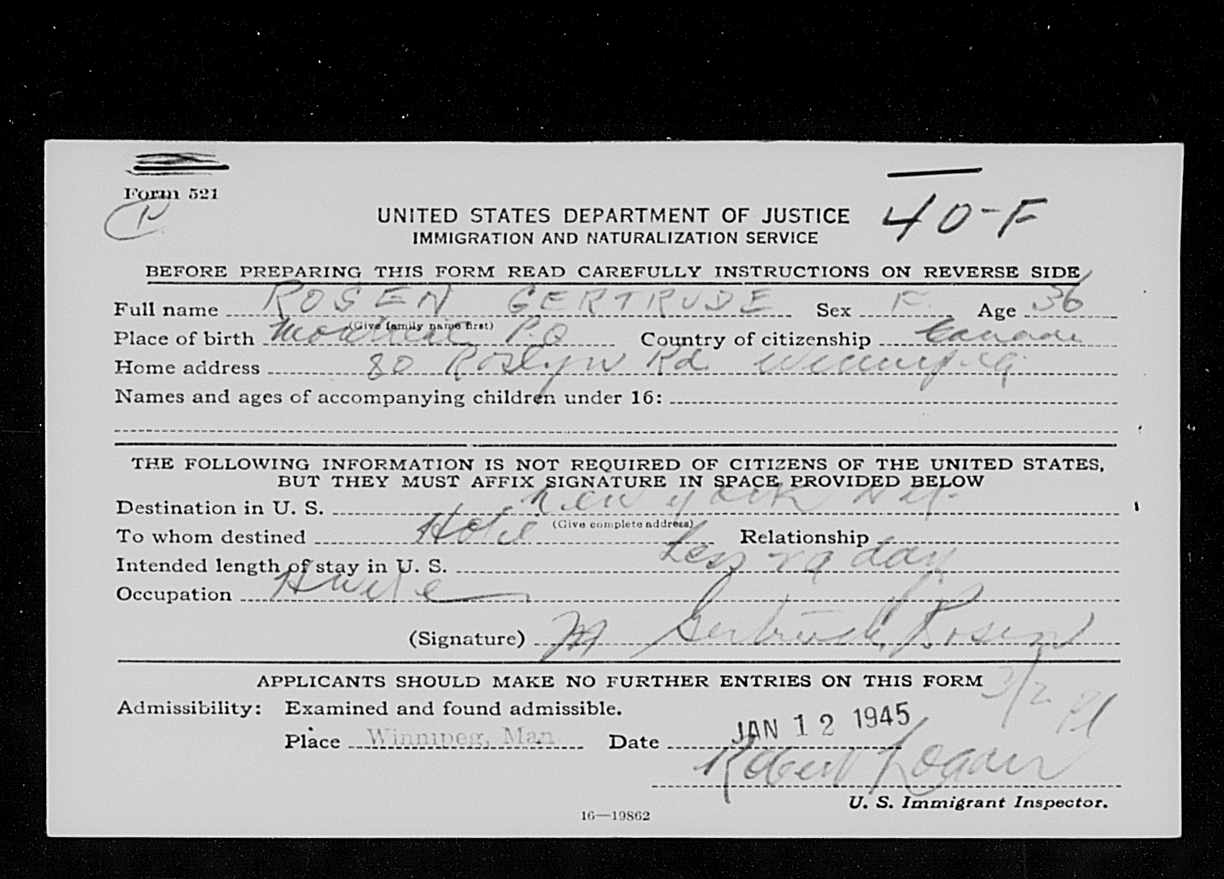 Form 521
40-F
UNITED STATES DEPARTMENT OF JUSTICE
IMMIGRATION AND NATURALIZATION SERVICE
BEFORE PREPARING THIS FORM READ CAREFULLY INSTRUCTIONS ON REVERSE SIDE
Full name ROSEN GERTRUDE Sex F. Age 36
(Give family name first)
Place of birth Montreal P.Q Country of citizenship Canada
Home address 80 Roslyn Rd. Winnipeg
Names and ages of accompanying children under 16:
THE FOLLOWING INFORMATION IS NOT REQUIRED OF CITIZENS OF THE UNITED STATES,
BUT THEY MUST AFFIX SIGNATURE IN SPACE PROVIDED BELOW
Destination in U. S. New York N.Y.
(Give complete address)
To whom destined Hotel Relationship
Intended length of stay in U. S. Less 29 day
Occupation Hwife
(Signature) M Gertrude Rosen
APPLICANTS SHOULD MAKE NO FURTHER ENTRIES ON THIS FORM
Admissibility: Examined and found admissible.
Place Winnipeg, Man. Date JAN 12 1945
Robert Logan
U. S. Immigrant Inspector.
16—19862